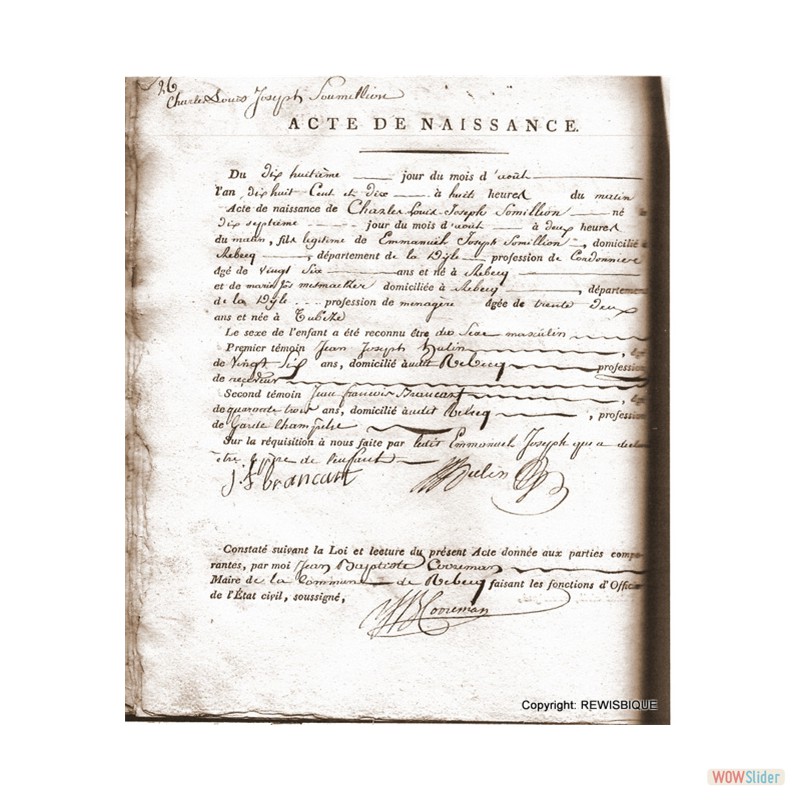 26
Charles Louis Joseph Soumillion
ACTE DE NAISSANCE.
Du dix huitième jour du mois d'août
l'an dix huit Cent et dix à huit heures du matin
Acte de naissance de Charles Louis Joseph Somillion né le
dix septieme jour du mois d'août à deux heures
du matin, fils legitime de Emmanuël Joseph Somillion, domicilié à
Rebecq, département de la Dÿle profession de Cordonniere
âgé de vingt Six ans et né à Rebecq
et de marie Jos mesmaekher domiciliée à Rebecq, département
de la Dÿle profession de menagere âgée de trente deux
ans et née à Tubize
Le sexe de l'enfant a été reconnu être du Sexe masculin
Premier témoin Jean Joseph hulin, âgé
de Vingt Six ans, domicilié audit Rebecq profession
de receveur
Second témoin Jean francois Brancart, âgé
de quarante trois ans, domicilié audit Rebecq, profession
de Garde Champetre
Sur la réquisition à nous faite par ledit Emmanuel Joseph que a declaré
être le pere de l'enfant
J. f brancart hulin
Constaté suivant la Loi et lecture du présent Acte donnée aux parties compa-
rantes, par moi Jean Baptiste Cooreman
Maire de la Commune de Rebecq faisant les fonctions d'Officier
de l'État civil, soussigné,
JB Cooreman
Copyright: REWISBIQUE
WOWSlider